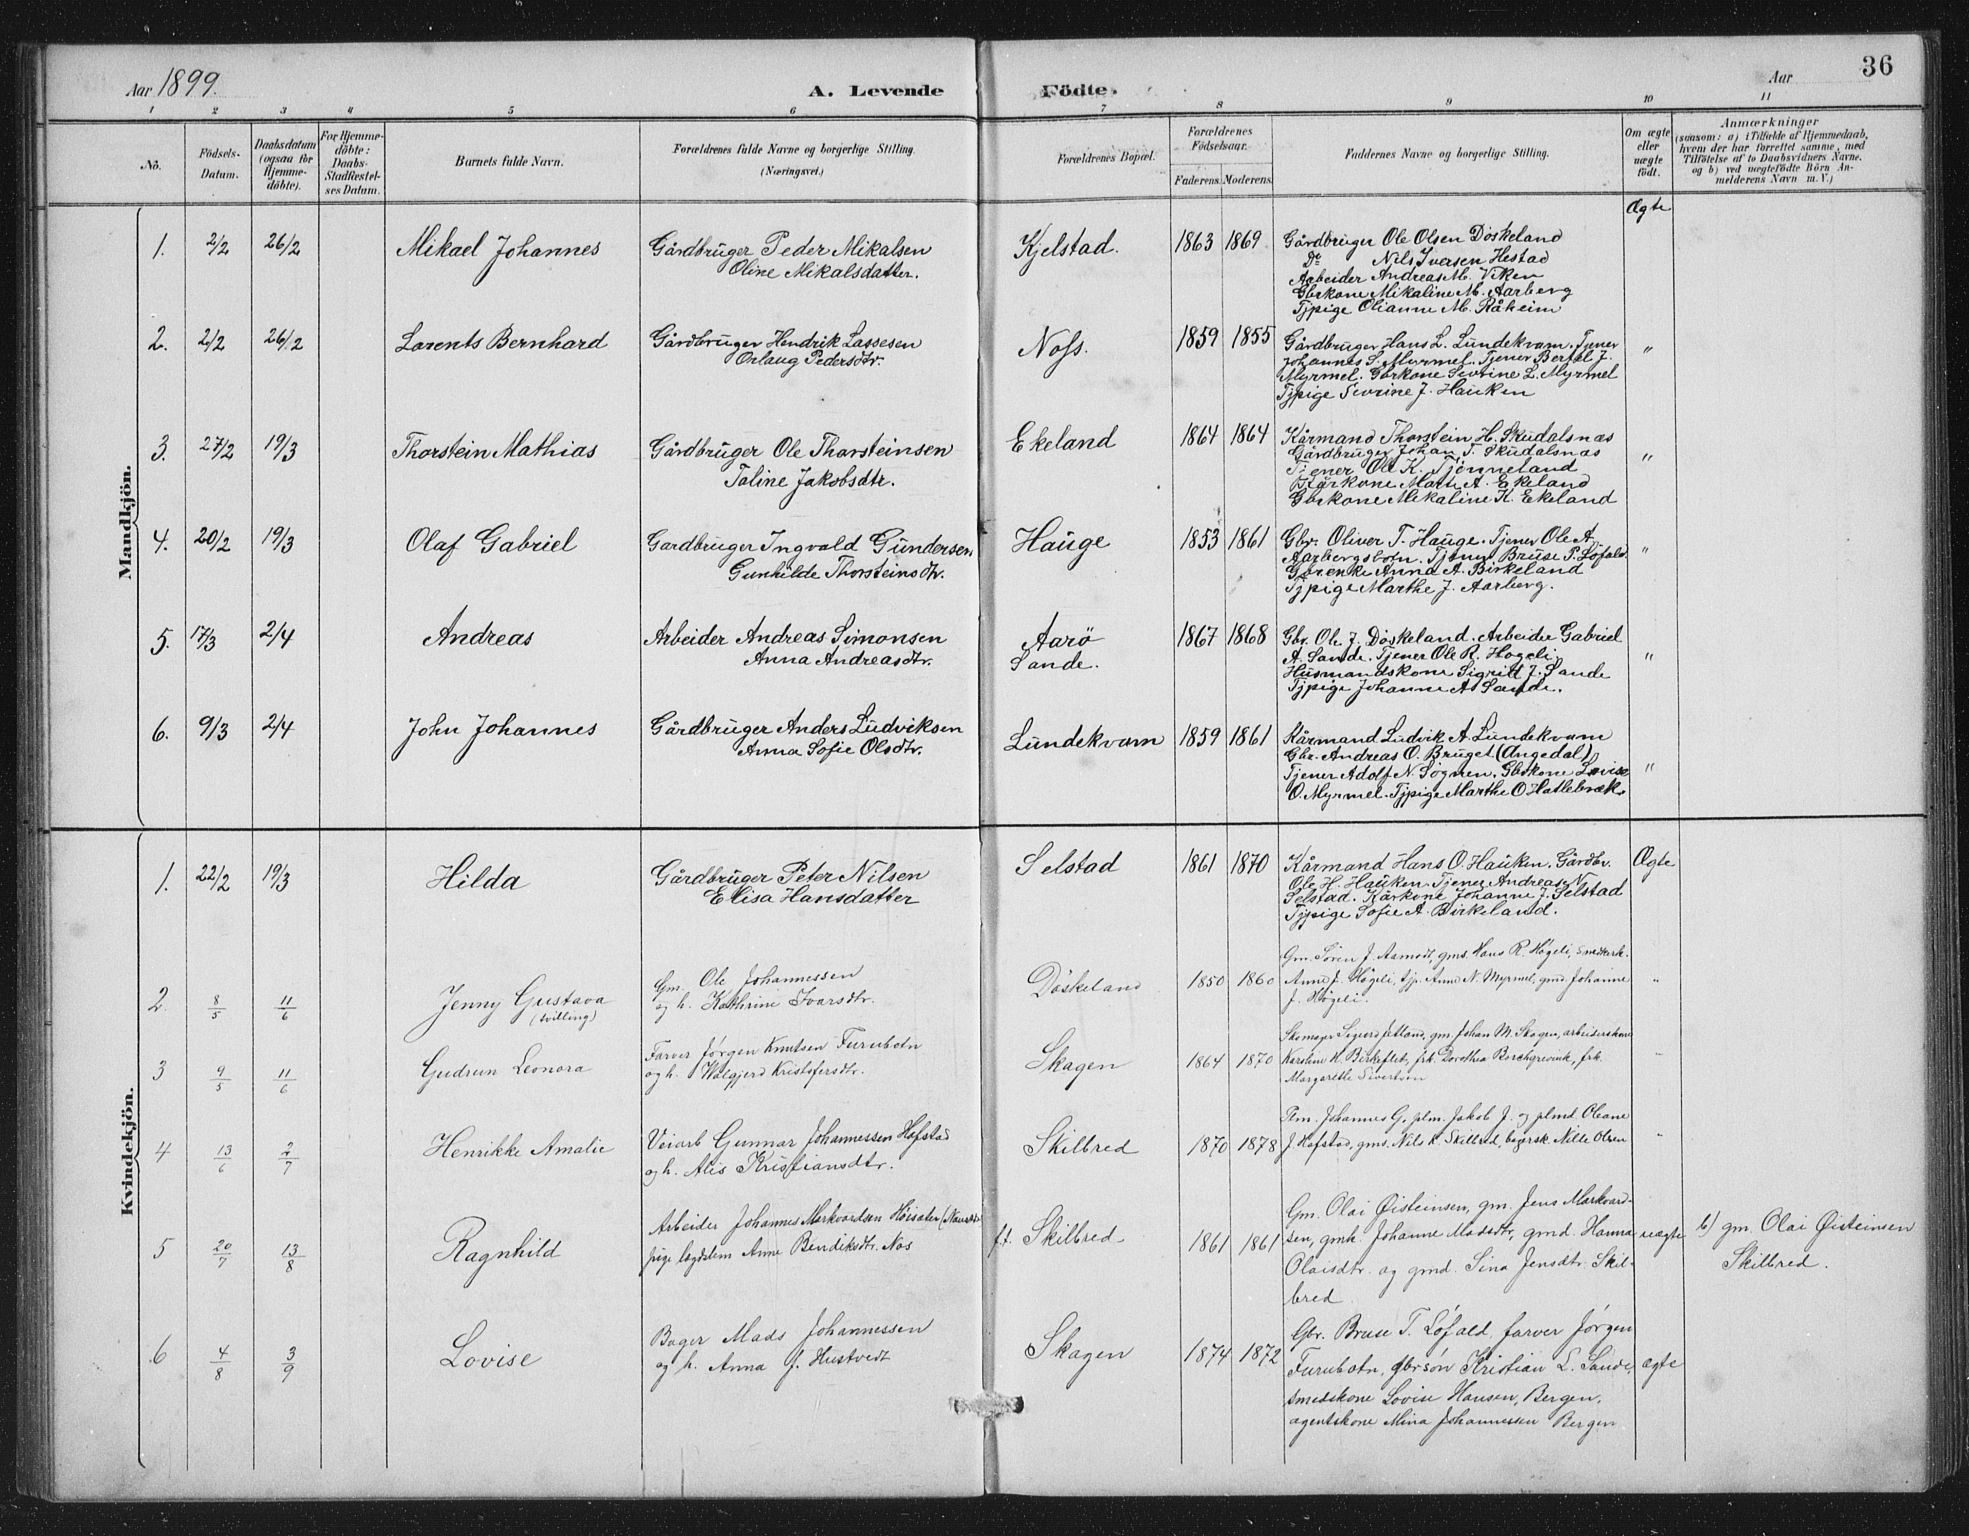 Aar 1899.
A. Levende Födte.
Aar
36
1 2 3 4 5 6 7 8 9 10 11
No.
Födsels-
Datum.
Daabsdatum
(ogsaa for
Hjemme-
döbte).
For Hjemme-
döbte:
Daabs-
Stadfæstel-
ses Datum.
Barnets fulde Navn.
Forældrenes fulde Navne og borgerlige Stilling.
(Næringsvei.)
Forældrenes Bopæl.
Forældrenes
Födselsaar.
Faderens. Moderens.
Faddernes Navne og borgerlige Stilling.
Om ægte
eller
uægte
födt.
Anmærkninger
(saasom: a) i Tilfælde af Hjemmedaab,
hvem der har forrettet samme, med
Tilföielse af to Daabsvidners Navne,
og b) ved uægtefödte Börn An-
melderens Navn m. V.)
Mandkjön.
1. 2/2 26/2 Mikael Johannes
Gårdbruger Peder Mikalsen
Oline Mikalsdatter.
Kjelstad. 1863 1869
Gårdbruger Ole Olsen Döskeland
Do Nils Iversen Hestad
Arbeider Andreas M. Viken
Gbrkone Mikaline M. Aarberg
Tjpige Olianne M. Råheim
Ægte
2. 2/2 26/2 Larents Bernhard
Gårdbruger Hendrik Lassesen
Orlaug Pedersdtr.
Noss. 1859 1855
Gårdbruger Hans L. Lundekvam. Tjener
Johannes S. Myrmel. Tjener Bertel J.
Myrmel. Gbrkone Sevrine L. Myrmel
Tjpige Sevrine J. Hauken
"
3. 27/2 19/3 Thorstein Mathias
Gårdbruger Ole Thorsteinsen
Taline Jakobsdtr.
Ekeland 1864 1864
Kårmand Thorstein H. Skudalsnas
Gårdbruger Johan T. Skudalsnas
Tjener Ole K. Tjönneland
Kårkone Mari A. Ekeland
Gbrkone Mikaline K. Ekeland
"
4. 20/2 19/3 Olaf Gabriel
Gardbruger Ingvald Gundersen
Gunhilde Thorsteinsdtr.
Hauge 1853 1861
Gbr. Oliver T. Hauge. Tjener Ole A.
Aarbergsbotn. Tjener Bruse P. Löfald.
Gbrenke Anna A. Birkeland
Tjpige Marthe J. Aarberg.
"
5. 17/3 2/4 Andreas
Arbeider Andreas Simonsen
Anna Andreasdtr.
Aarö
Sande. 1867 1868
Gbr. Ole J. Döskeland. Arbeider Gabriel
A. Sande. Tjener Ole R. Hogeli
Husmandskone Sigrid J. Sande
Tjpige Johanne A. Sande.
"
6. 9/3 2/4 John Johannes
Gårdbruger Anders Ludviksen
Anna Sofie Olsdtr.
Lundekvam 1859 1861
Kårmand Ludvik A. Lundekvam
Gbr. Andreas O. Bruget (Angedal)
Tjener Adolf N. Sognen. Gbrkone Lovise
O. Myrmel. Tjpige Marthe O Hatlebræk.
"
Kvindekjön.
1. 22/2 19/3 Hilda
Gårdbruger Peter Nilsen
Elisa Hansdatter
Selstad 1861 1870
Kårmand Hans O. Hauken. Gårdbr.
Ole H. Hauken. Tjener Andreas N.
Selstad. Kårkone Johanne J. Selstad
Tjpige Sofie A. Birkeland.
Ægte
2 8/5 11/6 Jenny Gustava
(tvilling)
Gm. Ole Johannessen
og h. Kathrine Ivarsdtr.
Döskeland 1850 1860
Gm. Sören J. Aamodt, gms. Hans R. Högeli, smedenk.
Anne J. Högeli, tjp. Anne N. Myrmel, gmd Johanne
J. Högeli.
"
3 9/5 11/6 Gudrun Leonora
Farver Jørgen Knutsen Furubotn
og h. Walgjerd Kristofersdtr.
Skagen 1864 1870
Skomager Sigurd Jetland, gm. Johan M. Skagen, arbeiderskone
Karoline H. Birkeflet, frk. Dorothea Berchgrevink, frk.
Margarethe Sivertsen
"
4 13/6 2/7 Henrikke Amalie
Veiarb Gunnar Johannessen Hafstad
og h. Alis Kristiansdtr.
Skilbred 1870 1878
Pm. Johannes G, plm. Jakob J. og plmd. Oleane
J. Hafstad, gms. Nils K. Skilbred, bagersk. Nille Olsen
"
5 20/7 13/8 Ragnhild
Arbeider Johannes Markvardsen Höisater
pige lægdslem Anne Bendiksdtr. Nos
ft. Skilbred 1861 1861
Gm. Olai Øisteinsen, gm. Jens Markvard-
sen, gmk. Johanne Madsdtr, gmd. Hanna
Olaisdtr. og gmd. Sina Jensdtr. Skil-
bred
uægte
b) gm. Olai Øisteinsen
Skilbred.
6 4/8 3/9 Lovise
Bager Mads Johannessen
og h. Anna J. Hustvedt
Skagen 1874 1872
Gbr. Bruse T. Löfald, farver Jørgen
Furubotn, gbrsön Kristian L. Sande,
smedskone Lovise Hansen, Bergen,
agentskone Mina Johannessen Bergen
ægte